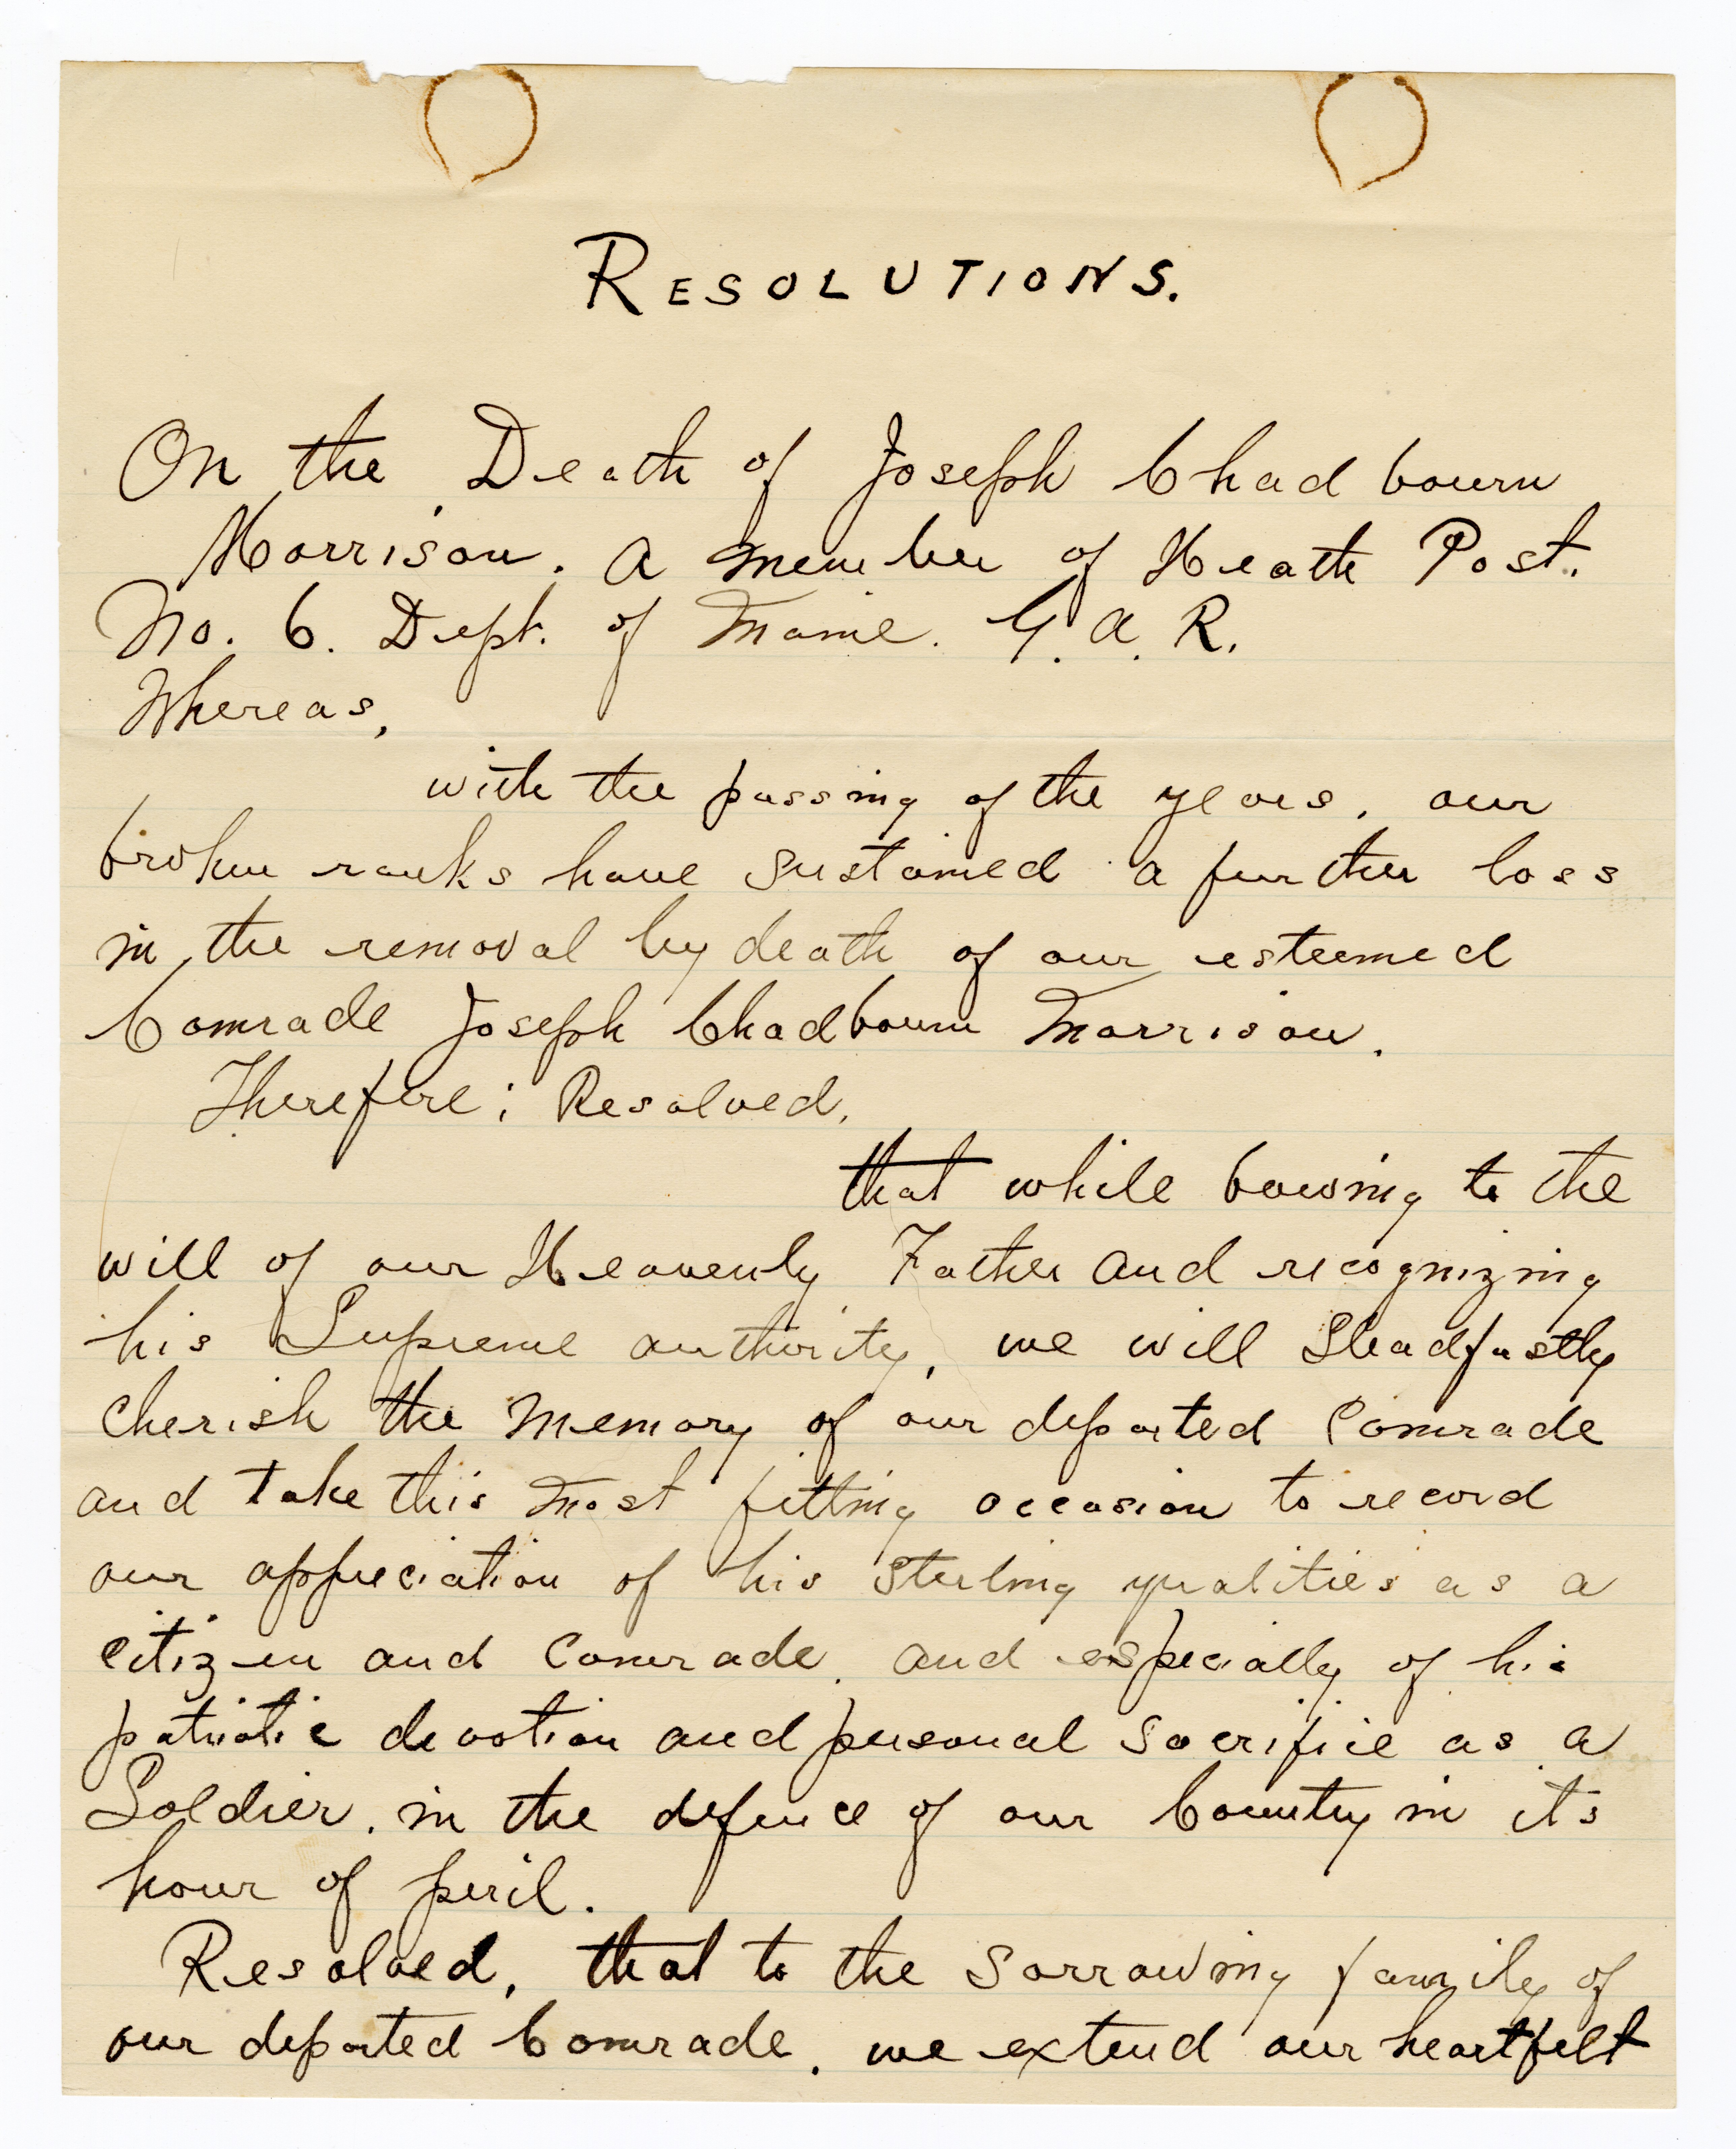 RESOLUTIONS.
On the Death of Joseph Chadbourn
Morrison. A member of Heath Post.
No. 6. Dept. of Maine. G. A. R.
Whereas,
with the passing of the years, our
broken ranks have sustained a further loss
in the removal by death of our esteemed
Comrade Joseph Chadbourn Morrison.
Therefore; Resolved,
that while bowing to the
will of our Heavenly Father and recognizing
his Supreme authority, we will Steadfastly
cherish the memory of our departed Comrade
and take this most fitting occasion to record
our appreciation of his Sterling qualities as a
citizen and Comrade, and especially of his
patriotic devotion and personal sacrifice as a
Soldier, in the defence of our Country in its
hour of peril.
Resolved, that to the sorrowing family of
our departed Comrade, we extend our heartfelt